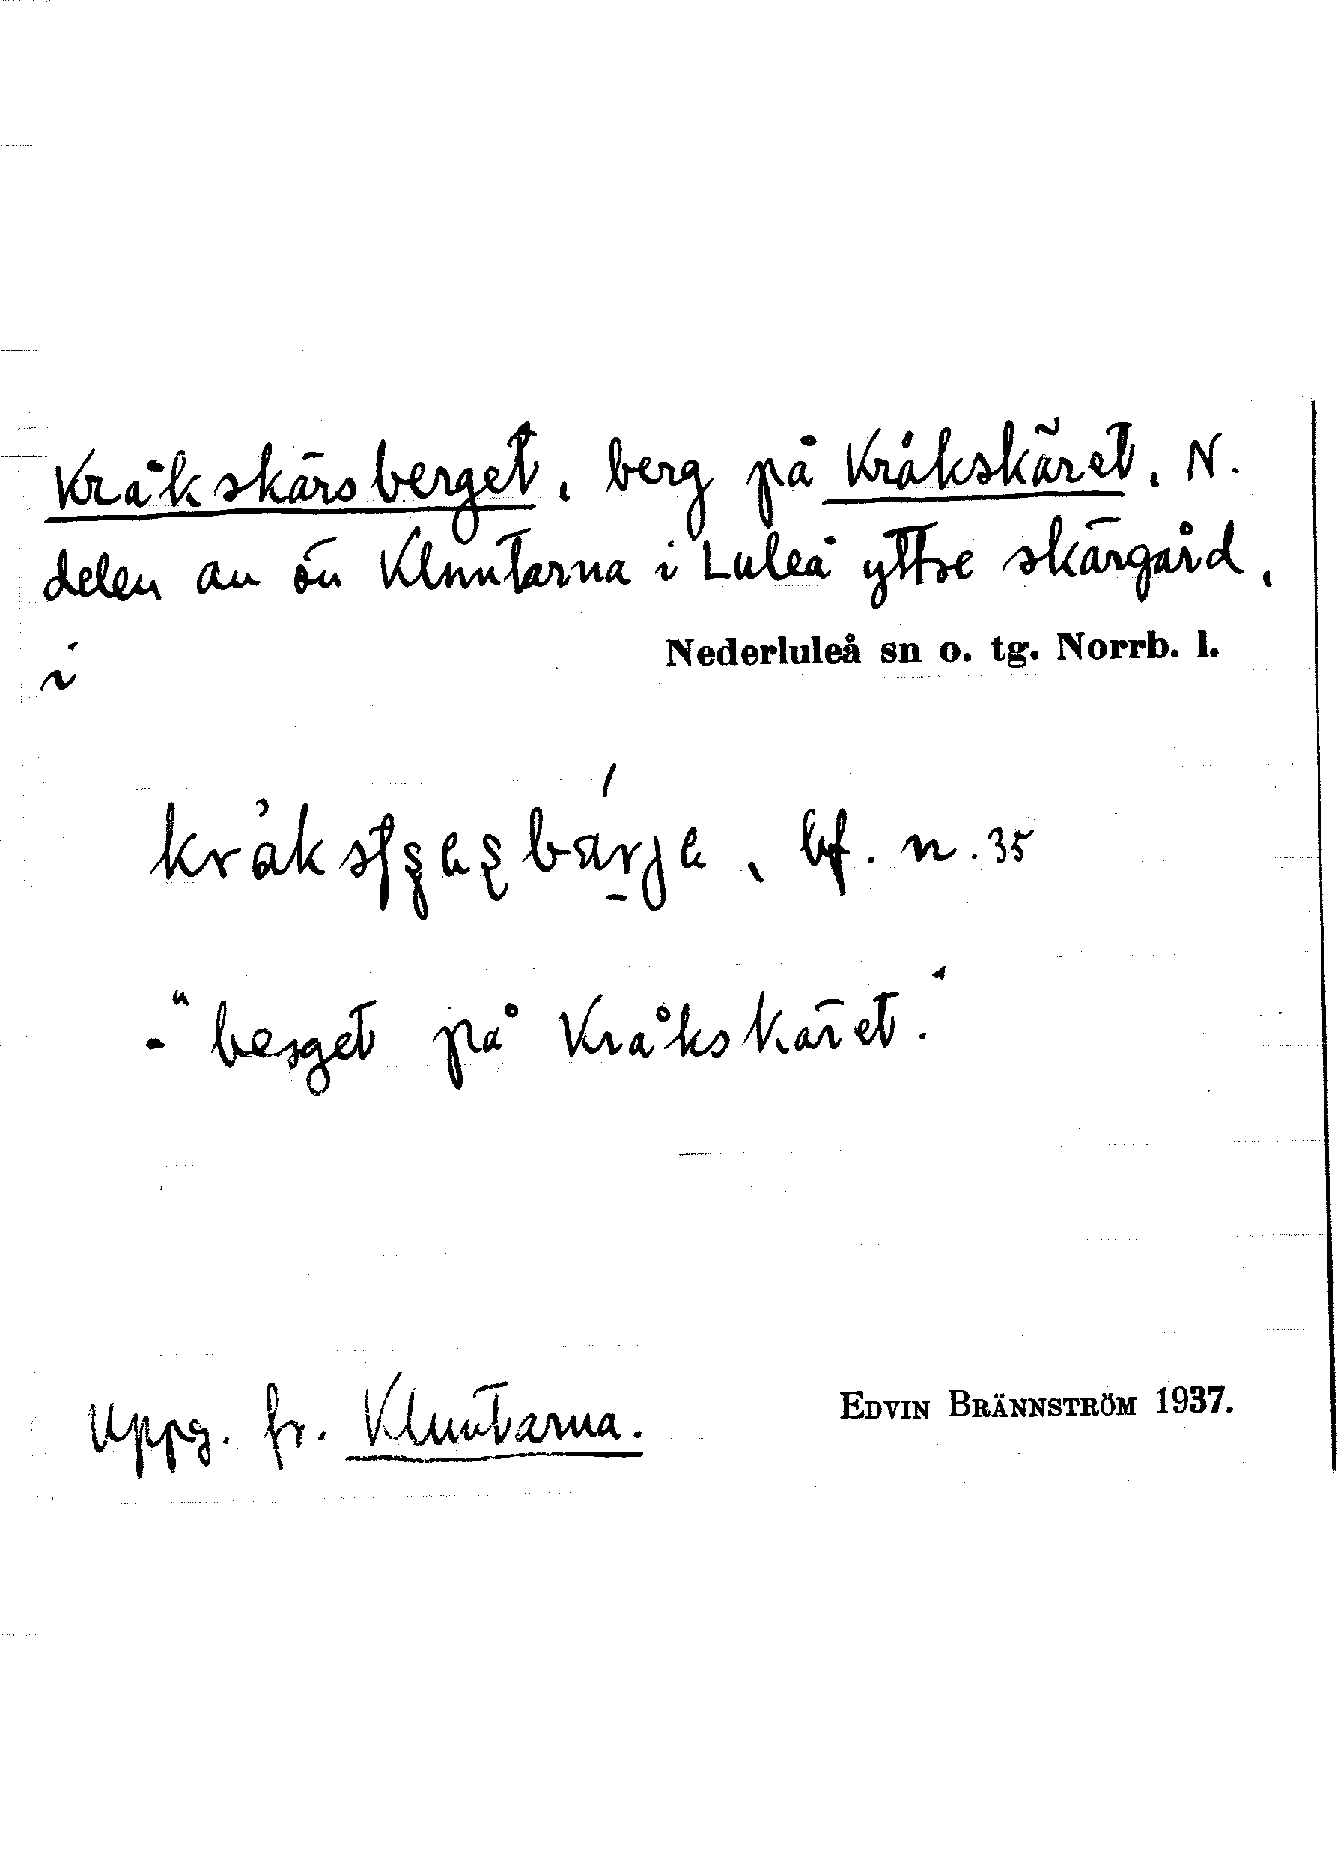 Kråkskärsberget, berg på Kråkskäret, N.
delen av ön Kluntarna i Luleå yttre skärgård,
i Nederluleå sn o. tg. Norrb. l.
bf. n. 35
- "berget på Kråkskäret."
Uppg. fr. Kluntarna. EDVIN BRÄNNSTRÖM 1937.